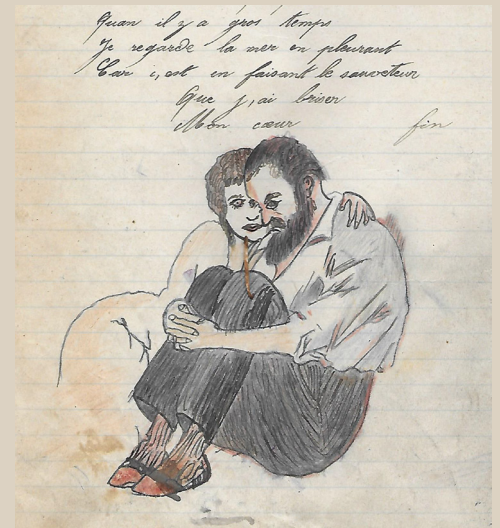 Quan il y a gros temps
Je regarde la mer en pleurant
Car c,est en faisant le sauveteur
Que j,ai briser
Mon cœur fin